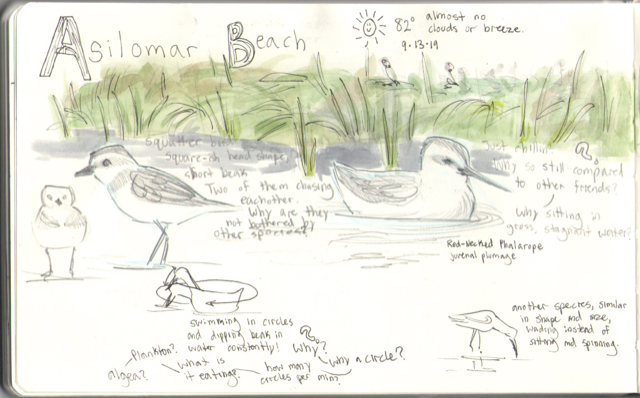 Asilomar Beach
82° almost no
clouds or breeze.
9.13.19
squatter
square-ish head shape,
short beak
Two of them chasing
eachother.
Why are they
not bothered by
other species?
Just chillin
Why so still compared
to other friends?
Why sitting in
gross, stagnant water?
Red-Necked Phalarope
juvenal plumage
swimming in circles
and dipping beak in
water constantly! Why?
Why a circle?
Plankton?
algea?
what is
it eating?
how many
circles per min?
another species, similar
in shape and size,
wading instead of
sitting and spinning.